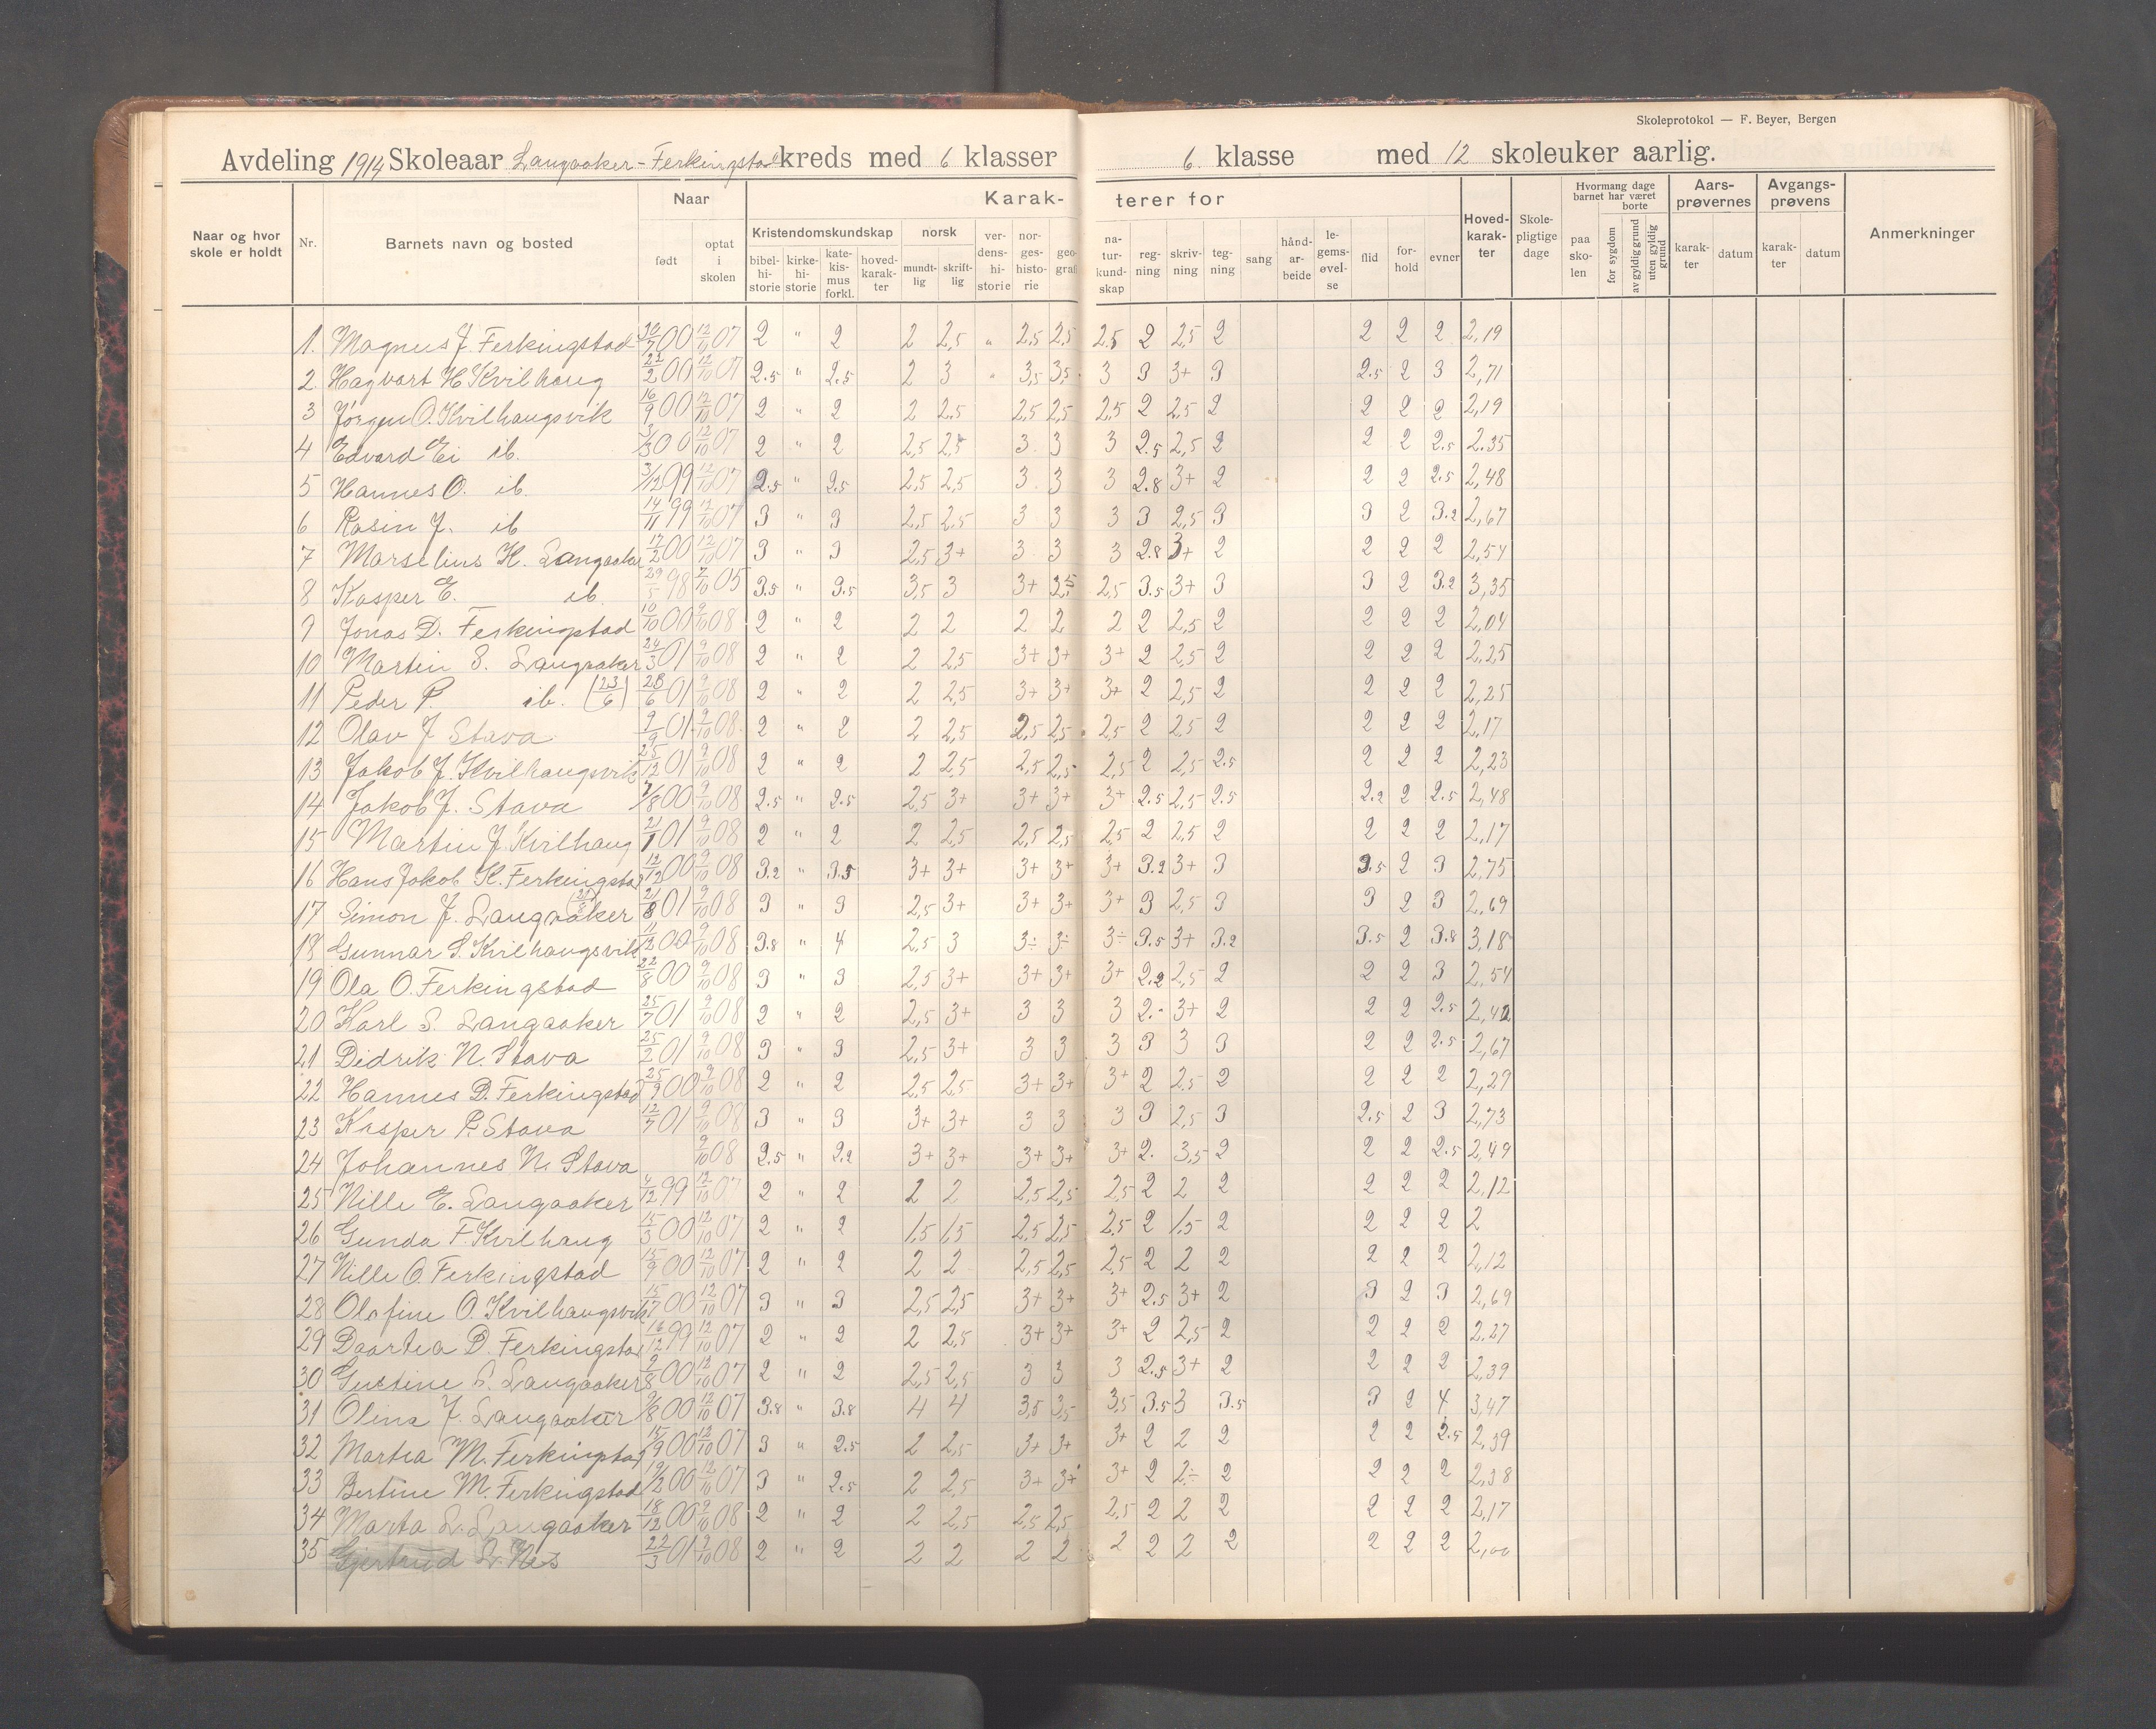 Skoleprotokol — F. Beyer, Bergen
Avdeling 1914 Skoleaar Langaaker-Ferkingstad kreds med 6 klasser 6 klasse med 12 skoleuker aarlig.
Naar og hvor skole er holdt Nr. Barnets navn og bosted Naar født optat i skolen Karak- terer for Kristendomskundskap bibel-hi-storie kirke-hi-storie kate-kis-mus forkl. hoved-karak-ter norsk mundt-lig skrift-lig ver-dens-hi-storie nor-ges-histo-rie geo-grafi na-tur-kund-skap reg-ning skriv-ning teg-ning sang hånd-ar-beide le-gems-øvel-se flid for-hold evner Hoved-karak-ter Skole-pligtige dage Hvormang dage barnet har været borte paa sko-len for sygdom av gyldig grund uten gyldig grund Aars-prøvernes karak-ter datum Avgangs-prøvens karak-ter datum Anmerkninger
1. Magnus J. Ferkingstad 30/7 00 12/10 07 2 " 2 2 2,5 " 2,5 2,5 2,5 2 2,5 2 2 2 2 2,19
2. Hagvart H Kvilhaug 22/2 00 12/10 07 2.5 " 2.5 2 3 " 3,5 3,5 3 3 3+ 3 2.5 2 3 2,71
3 Jörgen O. Kvilhaugsvik 16/9 00 12/10 07 2 " 2 2 2,5 2,5 2,5 2,5 2 2,5 2 2 2 2 2,19
4 Edvard Ei ib. 3/3 00 12/10 07 2 " 2 2,5 2,5 3 3 3 2.5 2,5 2 2 2 2.5 2.35
5 Hannes O. ib. 3/12 99 12/10 07 2.5 " 2.5 2,5 2,5 3 3 3 2.8 3+ 2 2 2 2.5 2,48
6 Rasin J. ib 14/11 99 12/10 07 3 " 3 2,5 2,5 3 3 3 3 2,5 3 3 2 3.2 2,67
7 Marselius K. Langaaker 17/2 00 12/10 07 3 " 3 2,5 3+ 3 3 3 2.8 3+ 2 2 2 2 2,54
8 Kasper E. ib. 29/5 98 7/10 05 3.5 " 3.5 3,5 3 3+ 3,5 2,5 3.5 3+ 3 3 2 3.2 3,35
9 Jonas D. Ferkingstad 10/10 00 9/10 08 2 " 2 2 2 2 2 2 2 2,5 2 2 2 2 2,04
10 Martin S. Langaaker 24/3 01 9/10 08 2 " 2 2 2,5 3+ 3+ 3+ 2 2,5 2 2 2 2 2,25
11 Peder P. ib. (23/6) 28/6 01 9/10 08 2 " 2 2 2,5 3+ 3+ 3+ 2 2,5 2 2 2 2 2,25
12 Olav J Stava 9/9 01 9/10 08 2 " 2 2 2,5 2,5 2,5 2,5 2 2,5 2 2 2 2 2,17
13 Jakob J. Kvilhaugsvik 25/12 01 9/10 08 2 " 2 2 2,5 2,5 2,5 2,5 2 2,5 2.5 2 2 2 2,23
14 Jakob J. Stava 7/8 00 9/10 08 2.5 " 2.5 2,5 3+ 3+ 3+ 3+ 2.5 2,5 2.5 2.2 2 2.5 2,48
15 Martin J Kvilhaug 21/1 01 9/10 08 2 " 2 2 2,5 2,5 2,5 2,5 2 2,5 2 2 2 2 2,17
16 Hans Jakob K. Ferkingstad 12/12 00 9/10 08 3.2 " 3.5 3+ 3+ 3+ 3+ 3+ 3.2 3+ 3 3.5 2 3 2,75
17 Simon J. Langaaker 21/8 01 9/10 08 3 " 3 2,5 3+ 3+ 3+ 3+ 3 2,5 3 3 2 3 2,69
18 Gunnar S. Kvilhaugsvik 11/3 00 9/10 08 3.8 " 4 2,5 3 3÷ 3÷ 3÷ 3.5 3+ 3.2 3.5 2 3.8 3,18
19 Ola O. Ferkingstad 22/8 00 9/10 08 3 " 3 2,5 3+ 3+ 3+ 3+ 2.2 2,5 2 2 2 3 2,54
20 Karl S. Langaaker 25/7 01 9/10 08 2 " 2 2,5 3+ 3 3 3 2.- 3+ 2 2 2 2.5 2,42
21 Didrik N. Stava 25/2 01 9/10 08 3 " 3 2,5 3+ 3 3 3 3 3 3 2 2 2.5 2,67
22 Hannes D. Ferkingstad 25/9 00 9/10 08 2 " 2 2,5 2,5 3+ 3+ 3+ 2 2,5 2 2 2 2 2,29
23 Kasper P. Stava 12/7 01 9/10 08 3 " 3 3+ 3+ 3 3 3 3 2,5 3 2.5 2 3 2,73
24 Johannes N. Stava 9/10 08 2.5 " 2.2 3+ 3+ 3+ 3+ 3+ 2. 3,5 2 2 2 2.5 2,49
25 Nille E. Langaaker 4/12 99 12/10 07 2 " 2 2 2 2,5 2,5 2,5 2 2 2 2 2 2 2,12
26 Gunda F. Kvilhaug 15/3 00 12/10 07 2 " 2 1,5 1,5 2,5 2,5 2,5 2 1,5 2 2 2 2 2
27 Nille O. Ferkingstad 15/9 00 12/10 07 2 " 2 2 2 2,5 2,5 2,5 2 2 2 2 2 2 2,12
28 Olafine O. Kvilhaugsvik 15/7 00 12/10 07 3 " 3 2,5 2,5 3+ 3+ 3+ 2.5 3+ 2 3 2 3 2,69
29 Daartea D. Ferkingstad 16/12 99 12/10 07 2 " 2 2 2,5 3+ 3+ 3+ 2 2,5 2 2 2 2 2,27
30 Gustine S. Langaaker 9/8 00 12/10 07 2 " 2 2,5 2,5 3 3 3 2.5 3+ 2 2 2 2 2,39
31 Olina J. Langaaker 9/8 00 12/10 07 3.8 " 3.8 4 4 3,5 3,5 3,5 3.5 3 3.5 3 2 4 3,47
32 Martea M. Ferkingstad 15/9 00 12/10 07 3 " 2.5 2 2,5 3+ 3+ 3+ 2 2 2 2 2 2.5 2,39
33 Bertine M. Ferkingstad 19/2 00 12/10 07 3 " 2.5 2 2,5 3+ 3+ 3+ 2 2÷ 2 2 2 2 2,38
34 Marta L. Langaaker 18/12 00 9/10 08 2 " 2 2 2,5 2,5 2,5 2,5 2 2 2 2 2 2 2,17
35 Gjertrud L. Nes 22/3 01 9/10 08 2 " 2 2 2 2 2 2 2 2 2 2 2 2 2,00